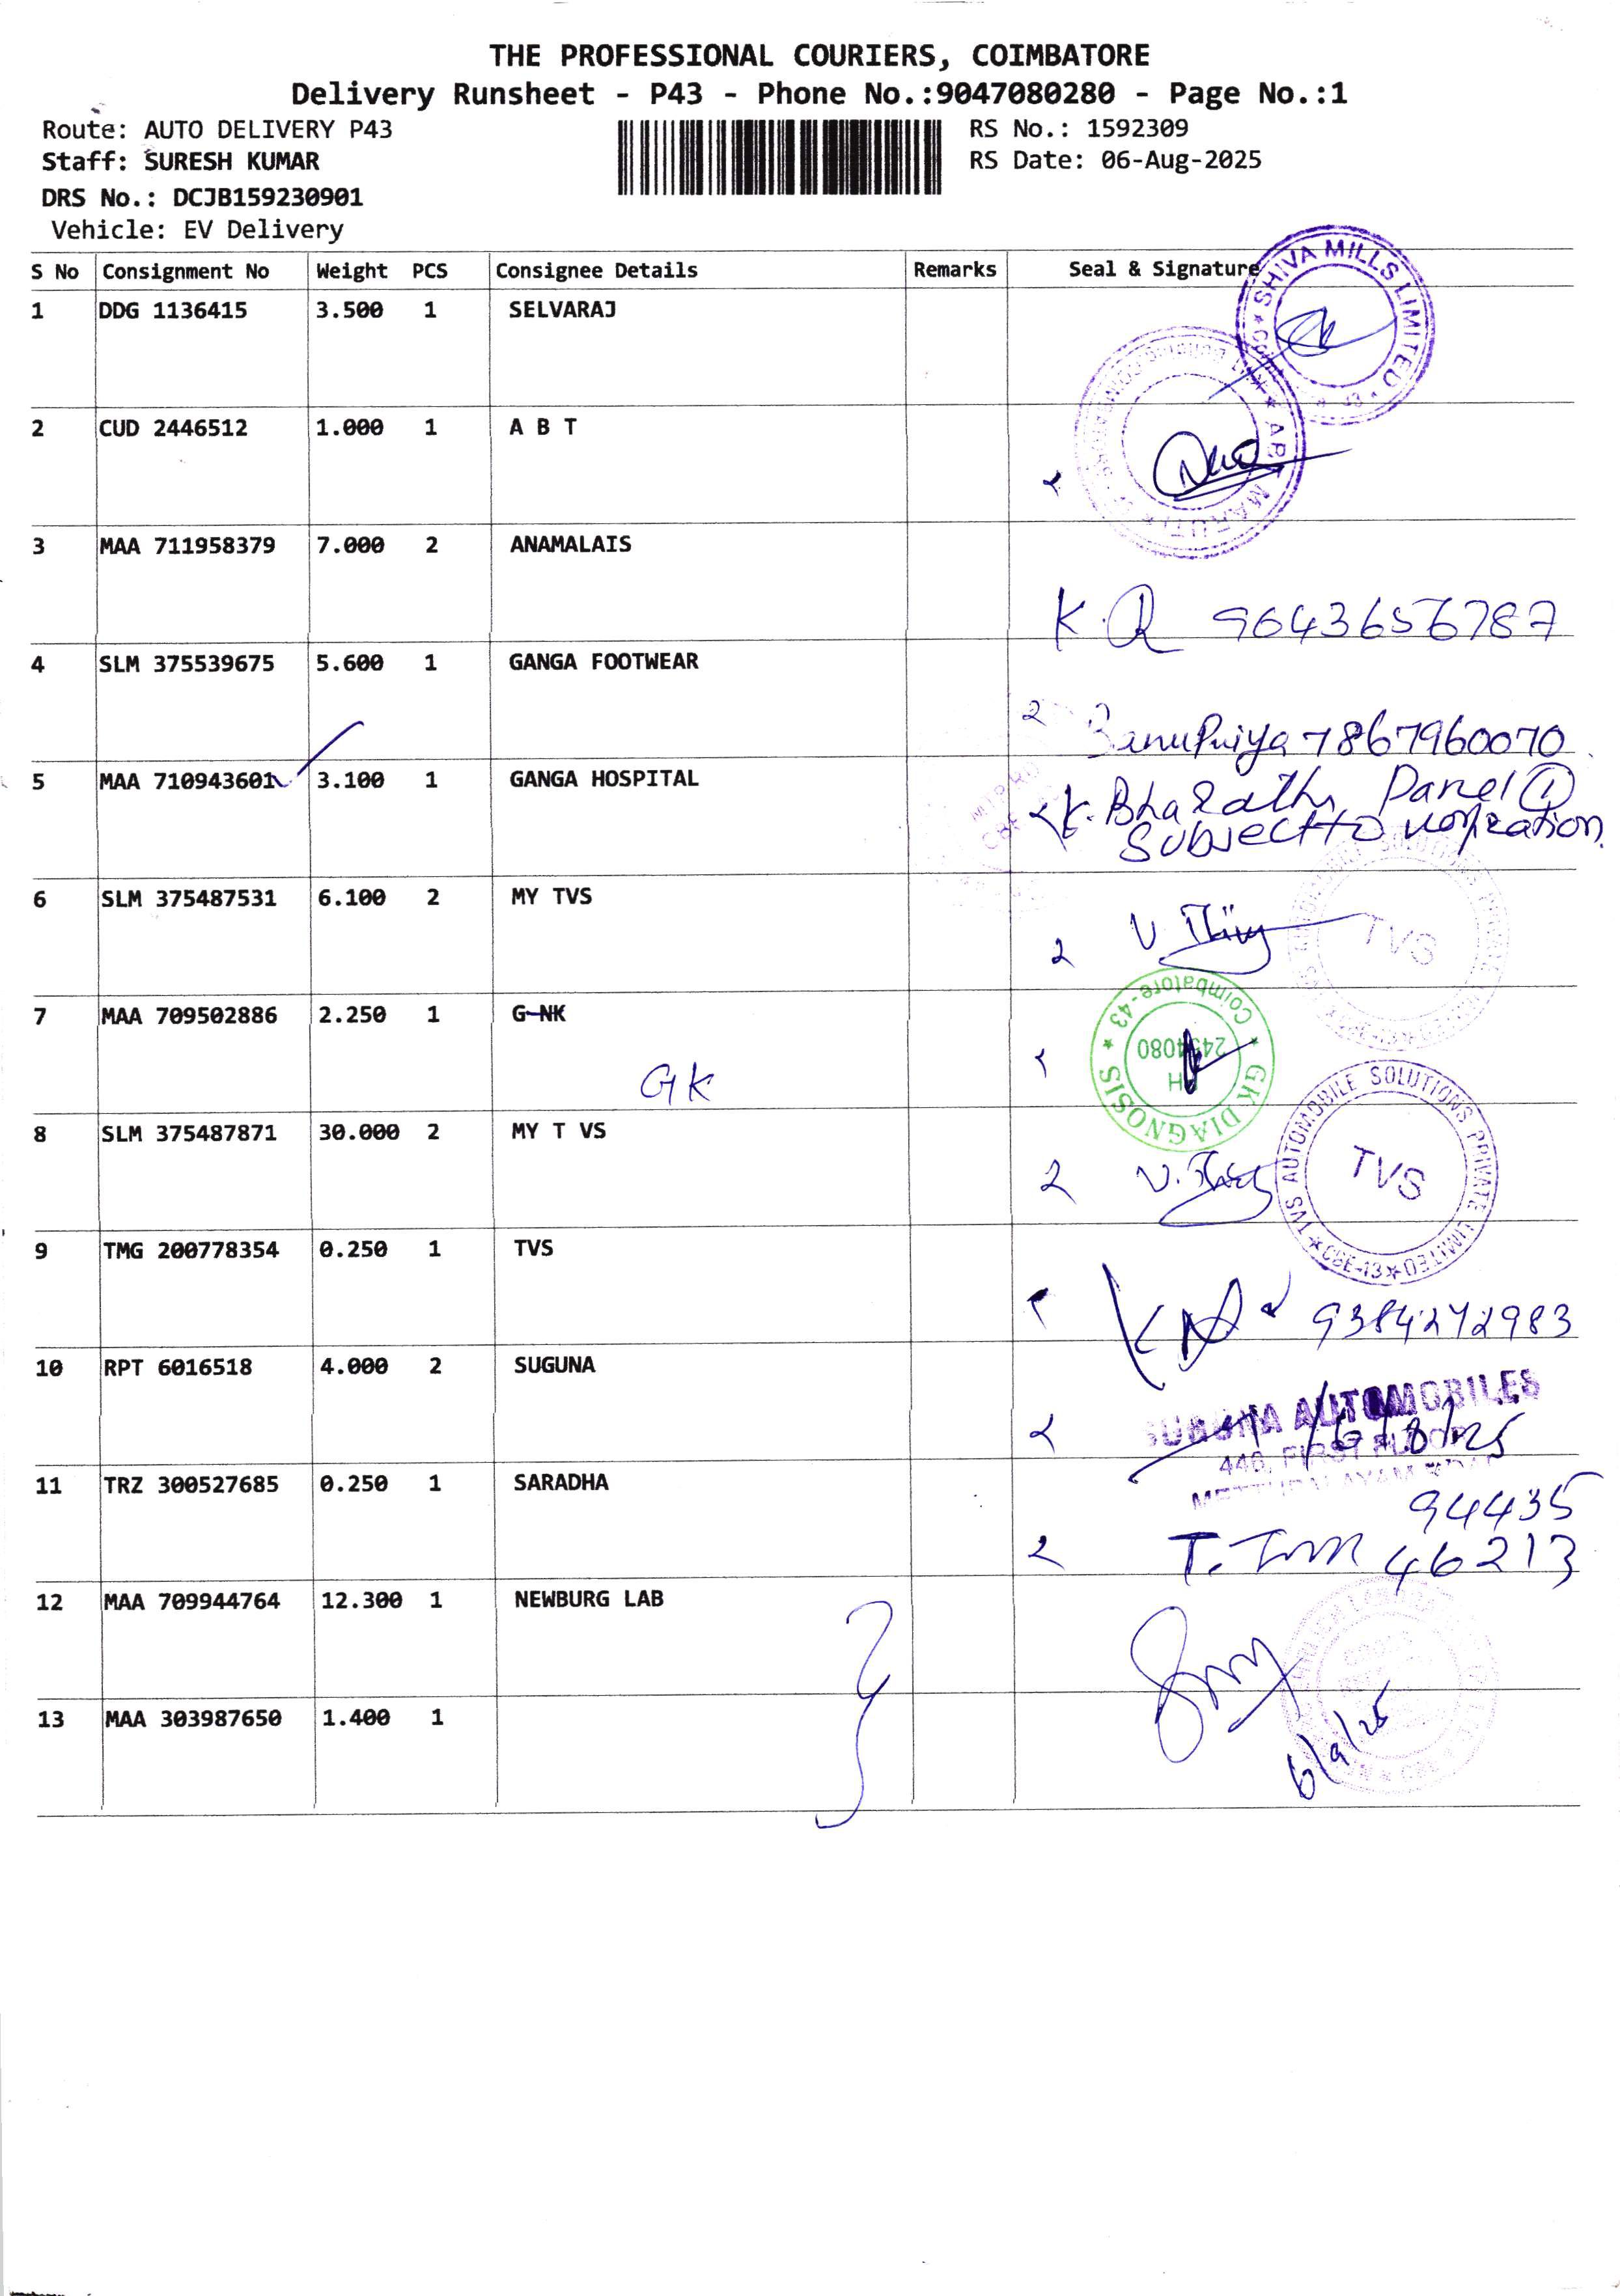 THE PROFESSIONAL COURIERS, COIMBATORE
Delivery Runsheet - P43 - Phone No.:9047080280 - Page No.:1
Route: AUTO DELIVERY P43
RS No.: 1592309
Staff: SURESH KUMAR
RS Date: 06-Aug-2025
DRS No.: DCJB159230901
Vehicle: EV Delivery
S No Consignment No Weight PCS Consignee Details Remarks Seal & Signature
SHIVA MILLS LIMITED
1 DDG 1136415 3.500 1 SELVARAJ
2 CUD 2446512 1.000 1 A B T
3 MAA 711958379 7.000 2 ANAMALAIS
K.R 9643656787
4 SLM 375539675 5.600 1 GANGA FOOTWEAR
BanuPriya 7867960070
5 MAA 710943601 3.100 1 GANGA HOSPITAL
K. Bharathi Panel 1
Subject to
6 SLM 375487531 6.100 2 MY TVS
TVS
7 MAA 709502886 2.250 1 G-NK
GK
GK DIAGNOSIS
Coimbatore-43
8 SLM 375487871 30.000 2 MY T VS
TVS AUTOMOBILE SOLUTIONS PRIVATE LIMITED
TVS
CBE-13
9 TMG 200778354 0.250 1 TVS
9384272983
10 RPT 6016518 4.000 2 SUGUNA
SUGUNA AUTOMOBILES
446, FIRST FLOOR
6/8/25
11 TRZ 300527685 0.250 1 SARADHA
94435
46213
12 MAA 709944764 12.300 1 NEWBURG LAB
13 MAA 303987650 1.400 1